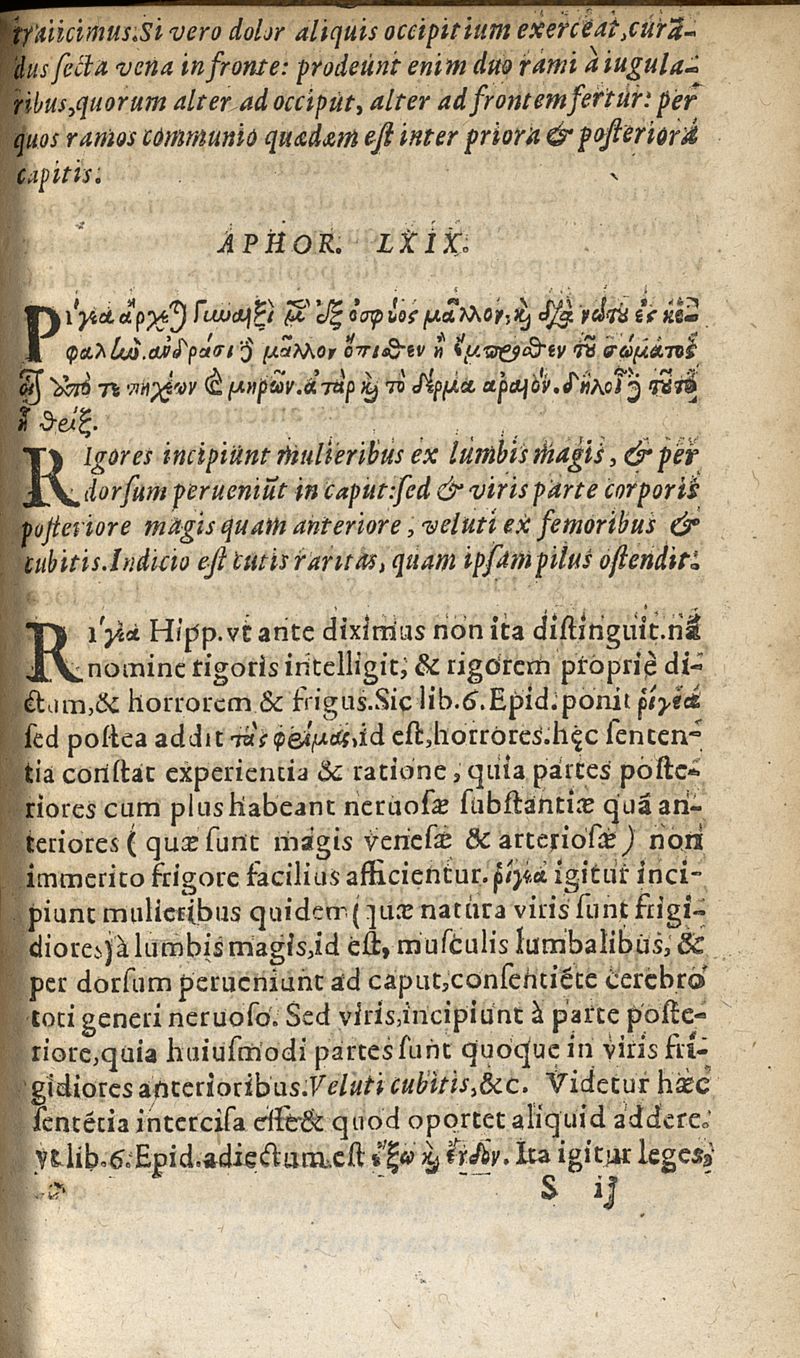 traiicimus. Si vero dolor aliquis occipitium exerceat, curā-
dus secta vena in fronte: prodeunt enim duo rami à iugula-
ribus, quorum alter ad occiput, alter ad frontem fertur: per
quos ramos communio quædam est inter priora & posteriora
capitis.
APHOR. LXIX.
Ρίγεα ἄρχεται γυναιξὶ μὲν ἐξ ὀσφύος μᾶλλον, καὶ διὰ νώτου ἐς κε-
φαλήν. ἀνδράσι δὲ μᾶλλον ὄπιθεν ἢ ἔμπροσθεν τοῦ σώματος
οἷον ἀπό τε πηχέων καὶ μηρῶν. ἀτὰρ καὶ τὸ δέρμα ἀραιόν. δηλοῖ δὲ τοῦτο
ἡ θρίξ.
RIgores incipiunt mulieribus ex lumbis magis, & per
dorsum perueniūt in caput: sed & viris parte corporis
posteriore magis quam anteriore, veluti ex femoribus &
cubitis. Indicio est cutis raritas, quam ipsam pilus ostendit.
Rίγεα Hipp. vt ante diximus non ita distinguit. nā
nomine rigoris intelligit, & rigorem propriè di-
ctum, & horrorem & frigus. Sic lib. 6. Epid. ponit ῥίγεα
sed postea addit τὰς φρίκας, id est, horrores. hęc senten-
tia constat experientia & ratione, quia partes poste-
riores cum plus habeant neruosæ substantiæ quā an-
teriores ( quæ sunt magis venosæ & arteriosæ ) non
immerito frigore facilius afficientur. ῥίγεα igitur inci-
piunt mulieribus quidem ( quæ natura viris sunt frigi-
diores) à lumbis magis, id est, musculis lumbalibus, &
per dorsum perueniunt ad caput, consentiēte cerebro
toti generi neruoso. Sed viris, incipiunt à parte poste-
riore, quia huiusmodi partes sunt quoque in viris fri-
gidiores anterioribus. Veluti cubitis, &c. Videtur hæc
sentētia intercisa esse & quod oportet aliquid addere.
vt lib. 6. Epid. adiectum est ἔξω καὶ ἔνδον. Ita igitur leges,
S ij